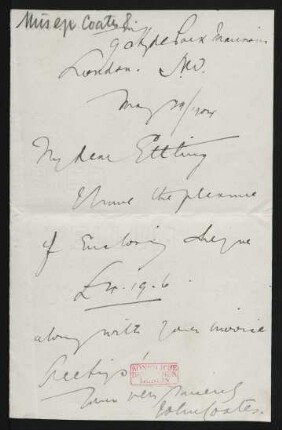 Mus ep Coates
9 Hyde Park Mansions
London. NW.
May 29/1904
My dear Ettling
I have the pleasure
of Enclosing cheque
£4.19.6
along with your invoice
Greetings!
Yours very sincerely
John Coates.